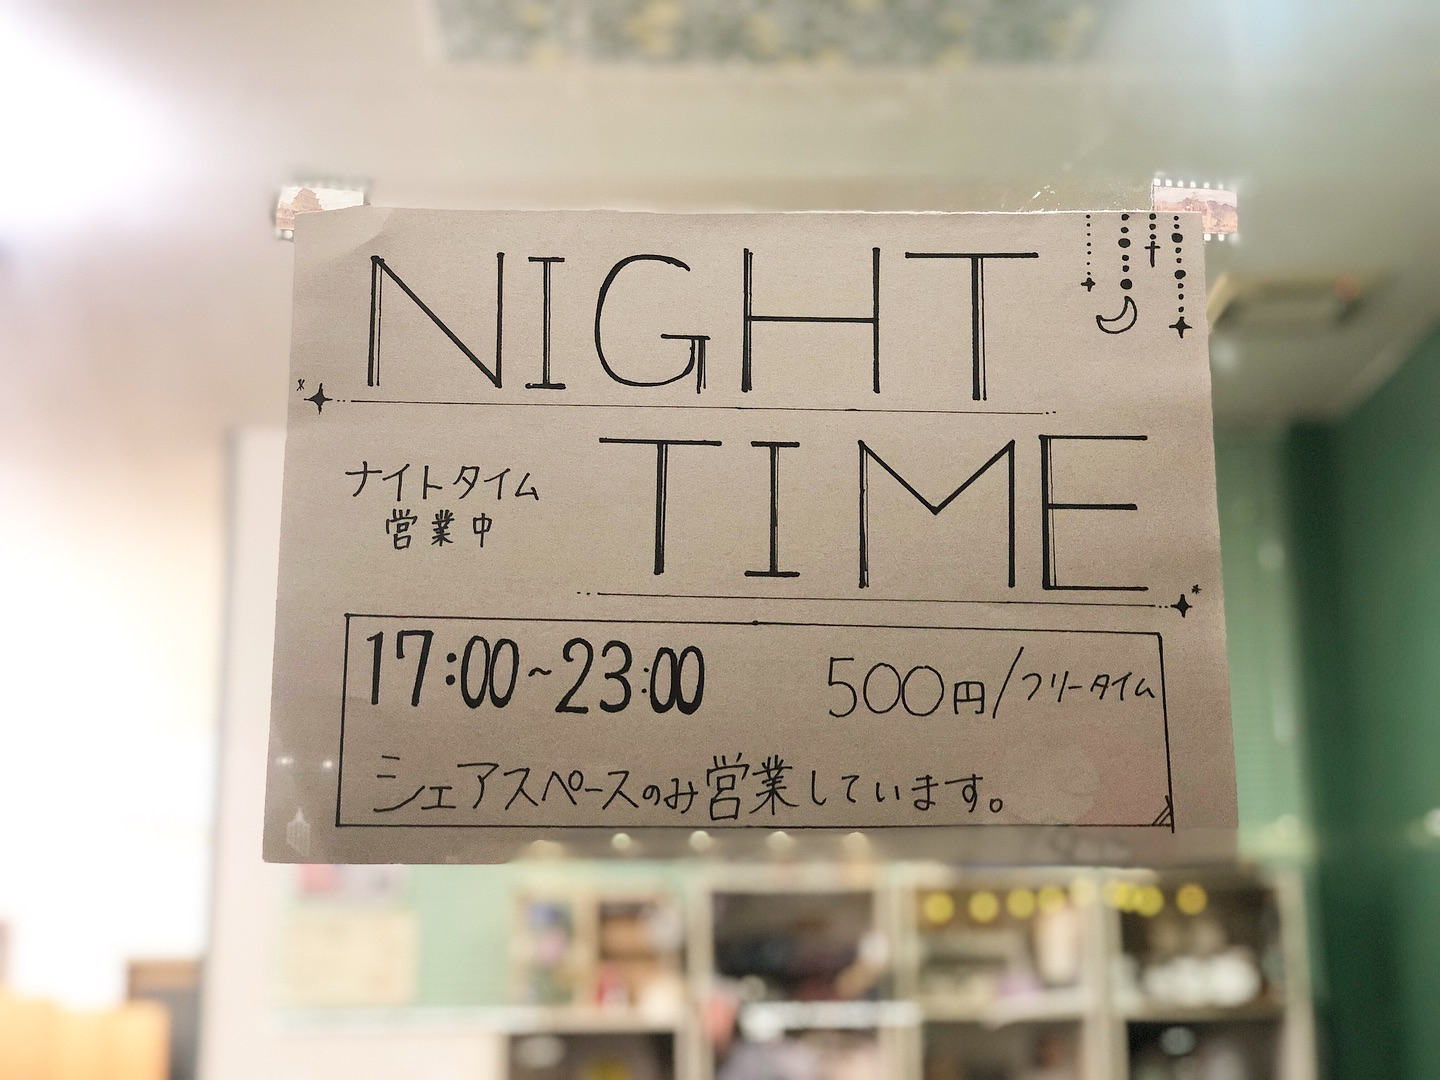 NIGHT
TIME
ナイトタイム
営業中
17:00~23:00
500円/フリータイム
シェアスペースのみ営業しています。